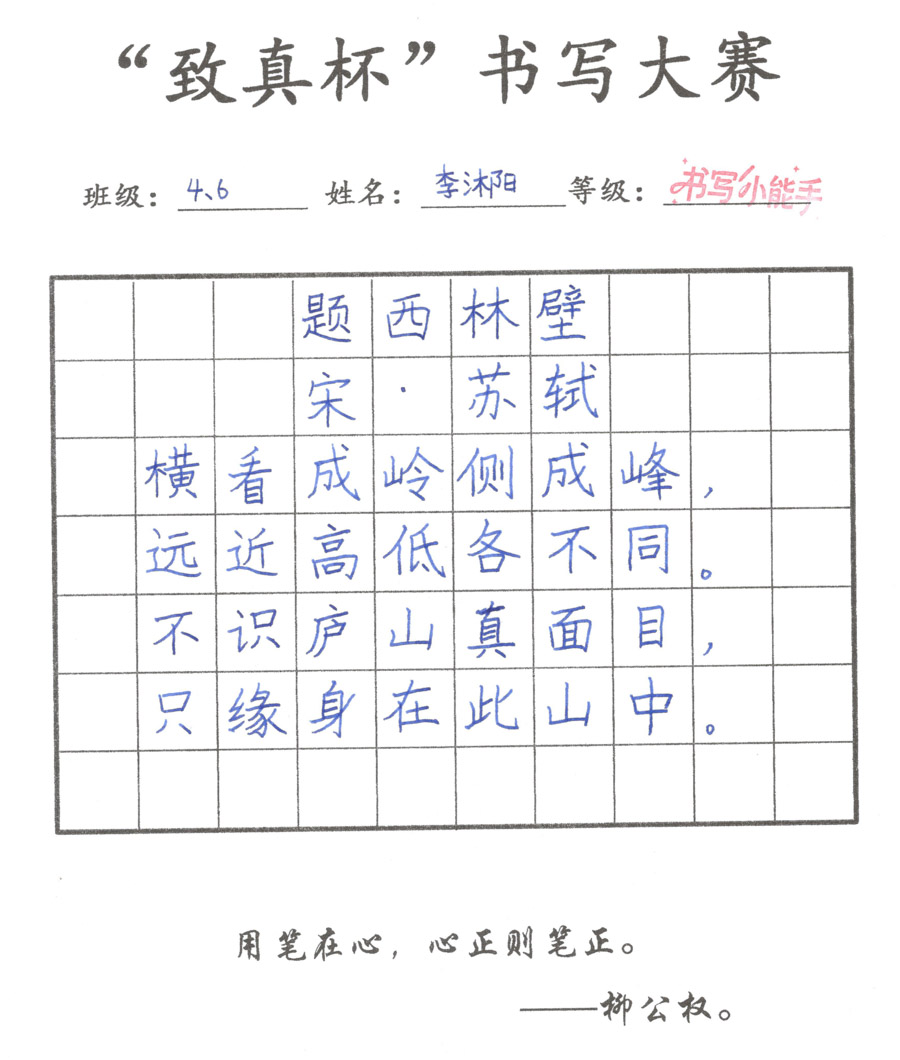 “致真杯”书写大赛
班级：4、6 姓名：李沐阳 等级：书写小能手
题西林壁
宋·苏轼
横看成岭侧成峰，
远近高低各不同。
不识庐山真面目，
只缘身在此山中。
用笔在心，心正则笔正。
——柳公权。